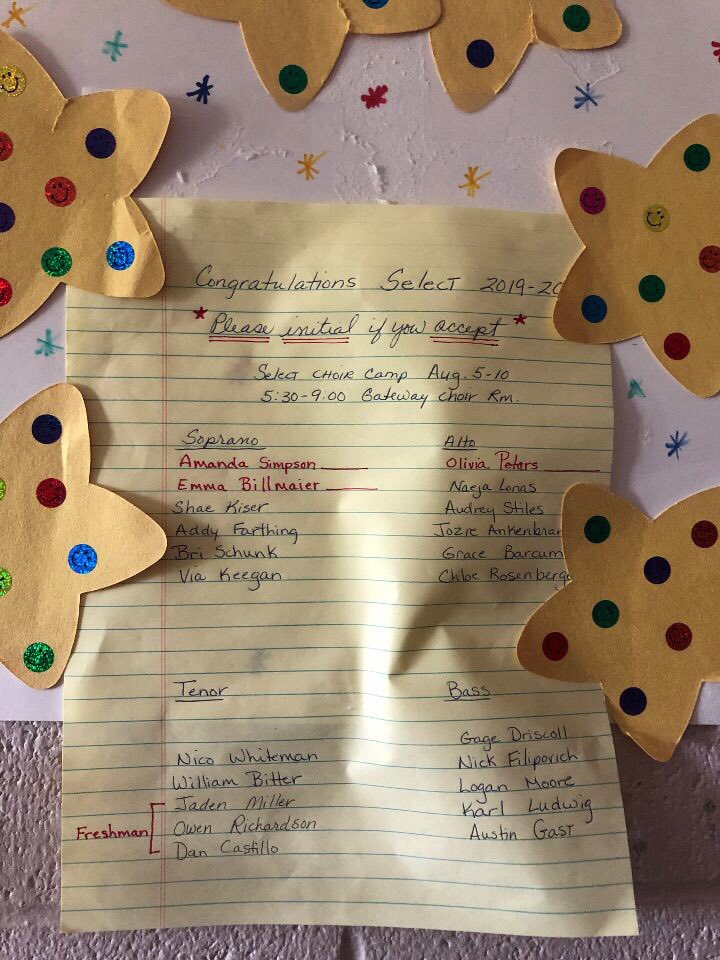 Congratulations Select 2019-20
* Please initial if you accept *
Select Choir Camp Aug. 5-10
5:30-9:00 Gateway Choir Rm.
Soprano
Amanda Simpson ____
Emma Billmaier ____
Shae Kiser
Addy Farthing
Bri Schunk
Via Keegan
Alto
Olivia Peters ____
Naeja Lonas
Audrey Stiles
Jozie Ankenbran
Grace Barcum
Chloe Rosenberge
Tenor
Nico Whiteman
William Bitter
Jaden Miller
Freshman
Owen Richardson
Dan Castillo
Bass
Gage Driscoll
Nick Filipovich
Logan Moore
Karl Ludwig
Austin Gast